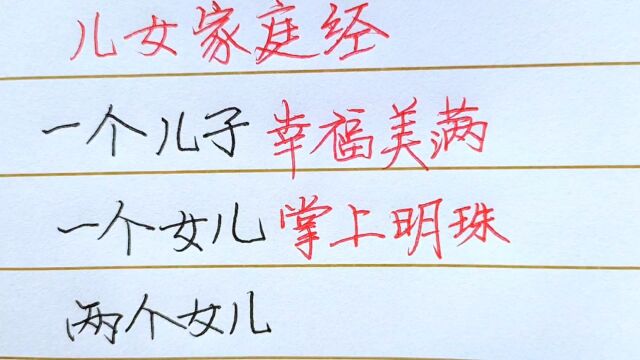 儿女家庭经
一个儿子幸福美满
一个女儿掌上明珠
两个女儿